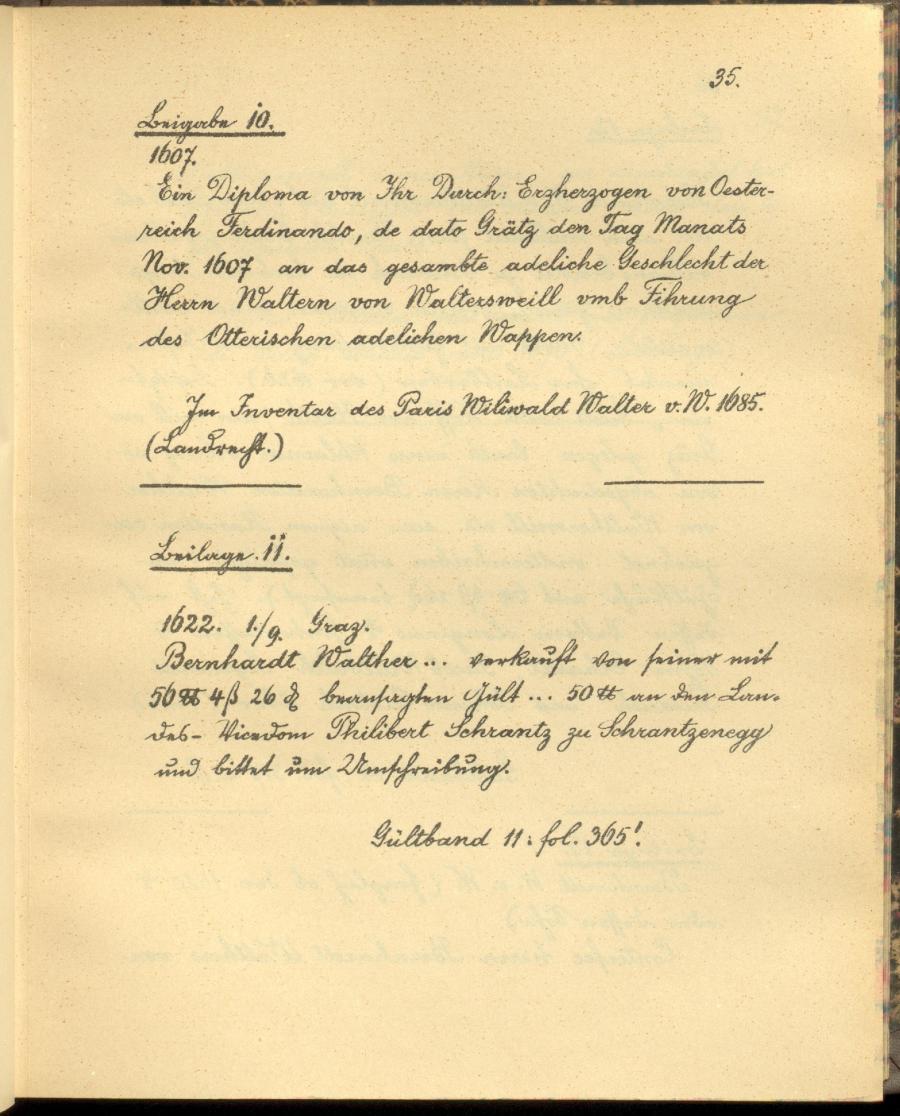 35.
Beigabe 10.
1607.
Ein Diploma von Ihr Durch: Erzherzogen von Oester-
reich Ferdinando, de dato Grätz den Tag Manats
Nov. 1607 an das gesambte adeliche Geschlecht der
Herrn Waltern von Waltersweill vmb Fihrung
des Otterischen adelichen Wappen.
Im Inventar des Paris Wiliwald Walter v. W. 1685.
(Landrecht.)
Beilage 11.
1622. 1./9. Graz.
Bernhardt Walther ... verkauft von seiner mit
56 ℔ 4 ß 26 ₰ beansagten Gült ... 50 ℔ an den Lan-
des- Vicedom Philibert Schrantz zu Schrantzenegg
und bittet um Umschreibung.
Gültband 11: fol. 365'.